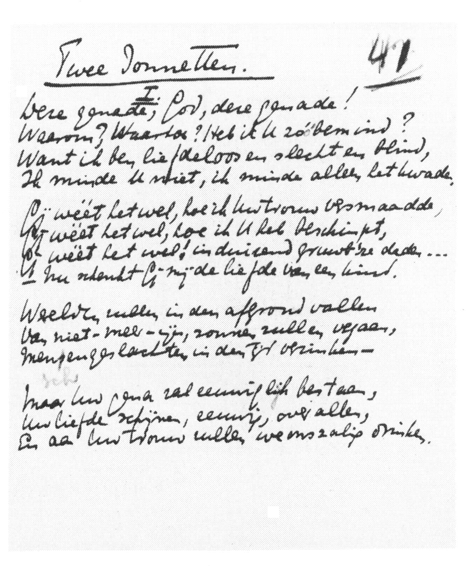 Twee Sonnetten.
41
I.
Deze genade, God, deze genade!
Waarom? Waartoe? Heb ik U zó bemind?
Want ik ben liefdeloos en slecht en blind,
Ik minde U niet, ik minde alleen het kwade.
Gij wéét het wel, hoe ik Uw trouw versmaadde,
Gij wéét het wel, hoe ik U heb beschimpt,
Gij wéét het wel! in duizend gruw'lze daden...
Nu schenkt Gij mij de liefde van een kind.
Werelden zullen in den afgrond vallen
Van niet-meer-zijn, zonnen zullen vergaan,
Menschengeslachten in den tijd verzinken—
sch
Maar Uw gena zal eeuwiglijk bestaan,
Uw liefde schijnen, eeuwig, over allen,
En aan Uw trouw zullen we ons zalig drinken.